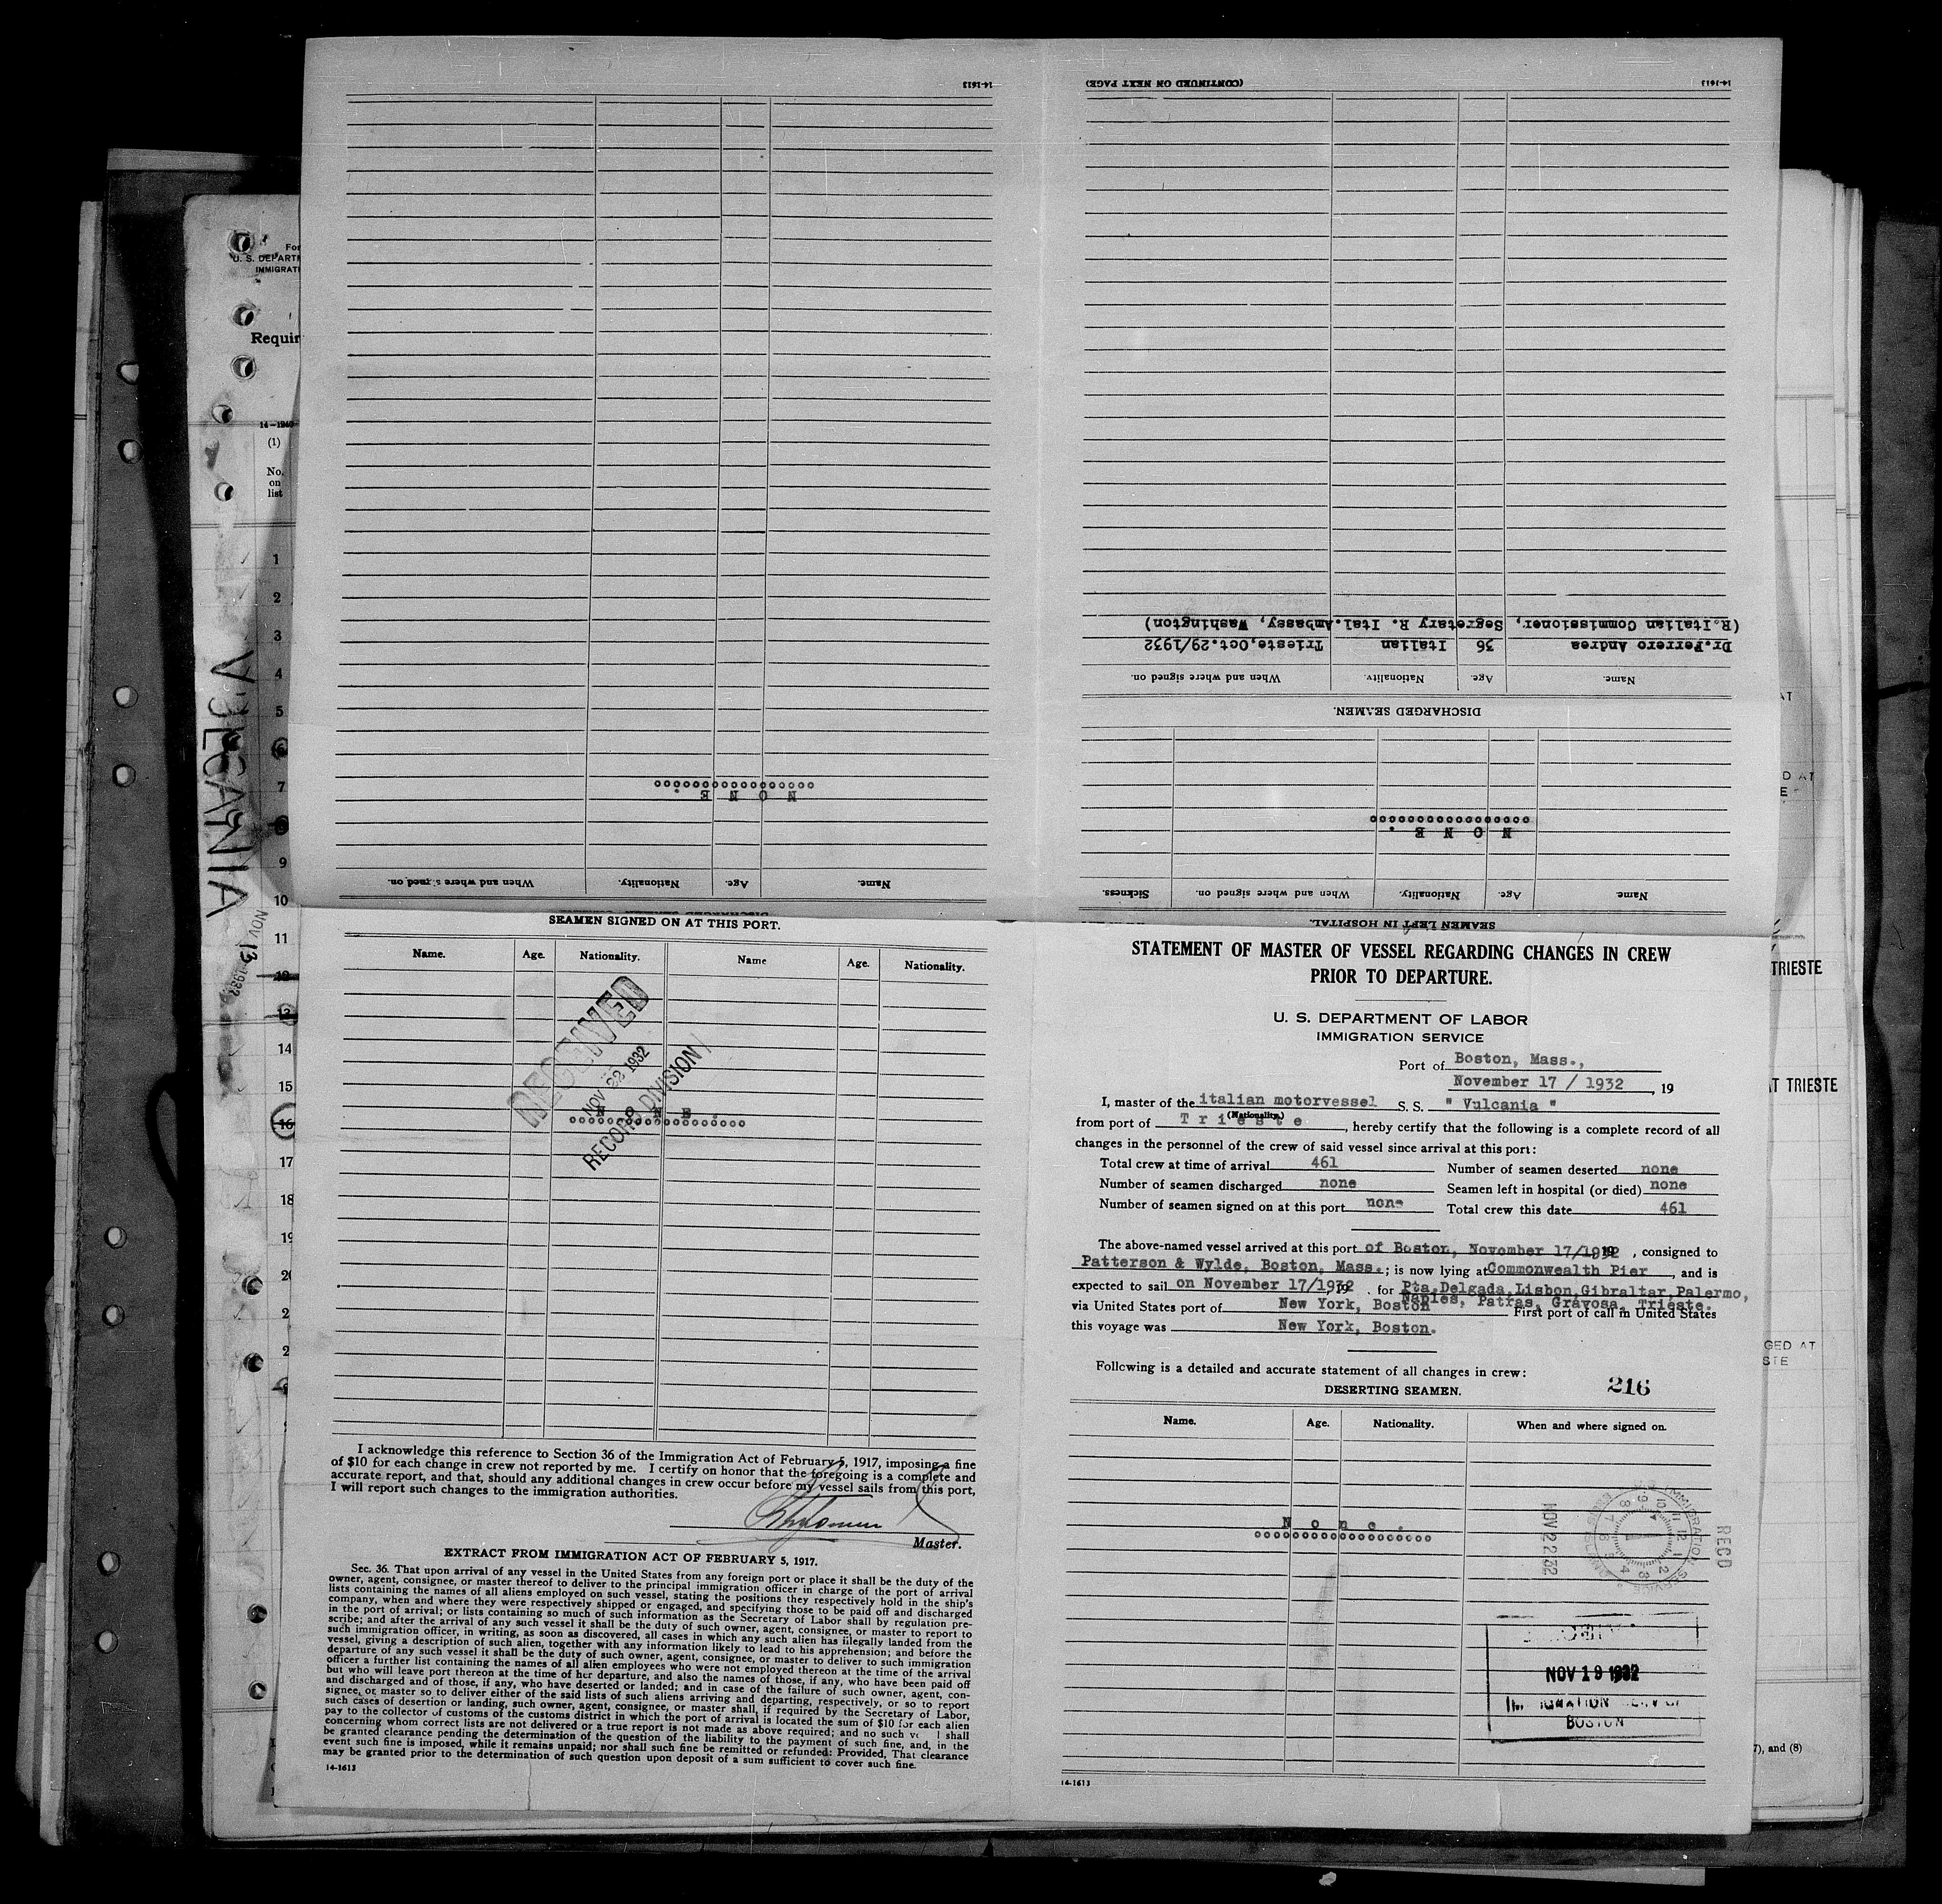 14-1613
NONE.
Name.
Age.
Nationality.
When and where signed on.
14-1613
(CONTINUED ON NEXT PAGE)
SEAMEN LEFT IN HOSPITAL.
Name. Age. Nationality. When and where signed on. Sickness.
NONE.
DISCHARGED SEAMEN.
Name. Age. Nationality. When and where signed on.
Dr.Ferrero Andrea 36 Italian Trieste,Oct.29/1932
(R.Italian Commissioner, Segretary R. Ital.Ambassy, Washington)
U. S. DEPARTM
IMMIGRATI
Requir
14-1240
(1)
No.
on
list
1
2
3
4
5
7
9
10
11
14
15
16
17
18
VULCANIA
NOV 13 1932
SEAMEN SIGNED ON AT THIS PORT.
Name. Age. Nationality. Name Age. Nationality.
RECEIVED
NOV 22 1932
RECORD DIVISION
NONE.
I acknowledge this reference to Section 36 of the Immigration Act of February 5, 1917, imposing a fine
of $10 for each change in crew not reported by me. I certify on honor that the foregoing is a complete and
accurate report, and that, should any additional changes in crew occur before my vessel sails from this port,
I will report such changes to the immigration authorities.
Master.
EXTRACT FROM IMMIGRATION ACT OF FEBRUARY 5, 1917.
Sec. 36. That upon arrival of any vessel in the United States from any foreign port or place it shall be the duty of the
owner, agent, consignee, or master thereof to deliver to the principal immigration officer in charge of the port of arrival
lists containing the names of all aliens employed on such vessel, stating the positions they respectively hold in the ship's
company, when and where they were respectively shipped or engaged, and specifying those to be paid off and discharged
in the port of arrival; or lists containing so much of such information as the Secretary of Labor shall by regulation pre-
scribe; and after the arrival of any such vessel it shall be the duty of such owner, agent, consignee, or master to report to
such immigration officer, in writing, as soon as discovered, all cases in which any such alien has illegally landed from the
vessel, giving a description of such alien, together with any information likely to lead to his apprehension; and before the
departure of any such vessel it shall be the duty of such owner, agent, consignee, or master to deliver to such immigration
officer a further list containing the names of all alien employees who were not employed thereon at the time of the arrival
but who will leave port thereon at the time of her departure, and also the names of those, if any, who have been paid off
and discharged and of those, if any, who have deserted or landed; and in case of the failure of such owner, agent, con-
signee, or master so to deliver either of the said lists of such aliens arriving and departing, respectively, or so to report
such cases of desertion or landing, such owner, agent, consignee, or master shall, if required by the Secretary of Labor,
pay to the collector of customs of the customs district in which the port of arrival is located the sum of $10 for each alien
concerning whom correct lists are not delivered or a true report is not made as above required; and no such shall
be granted clearance pending the determination of the question of the liability to the payment of such fine, and, in the
event such fine is imposed, while it remains unpaid; nor shall such fine be remitted or refunded: Provided, That clearance
may be granted prior to the determination of such question upon deposit of a sum sufficient to cover such fine.
14-1613
STATEMENT OF MASTER OF VESSEL REGARDING CHANGES IN CREW
PRIOR TO DEPARTURE.
U. S. DEPARTMENT OF LABOR
IMMIGRATION SERVICE
Port of Boston, Mass.,
November 17 / 1932, 19
I, master of the italian motorvessel S. S. " Vulcania "
(Nationality.)
from port of Trieste, hereby certify that the following is a complete record of all
changes in the personnel of the crew of said vessel since arrival at this port:
Total crew at time of arrival 461 Number of seamen deserted none
Number of seamen discharged none Seamen left in hospital (or died) none
Number of seamen signed on at this port none Total crew this date 461
The above-named vessel arrived at this port of Boston, November 17/1932, consigned to
Patterson & Wylde, Boston, Mass.; is now lying at Commonwealth Pier, and is
expected to sail on November 17/1932 19 . for Pta.Delgada,Lisbon,Gibraltar,Palermo,
Naples, Patras, Gravosa, Trieste.
via United States port of New York, Boston First port of call in United States
this voyage was New York, Boston.
Following is a detailed and accurate statement of all changes in crew:
DESERTING SEAMEN. 216
Name. Age. Nationality. When and where signed on.
None.
NOV 22 32
RECD
NOV 19 1932
BOSTON
14-1613
TRIESTE
AT TRIESTE
GED AT
STE
), and (8)